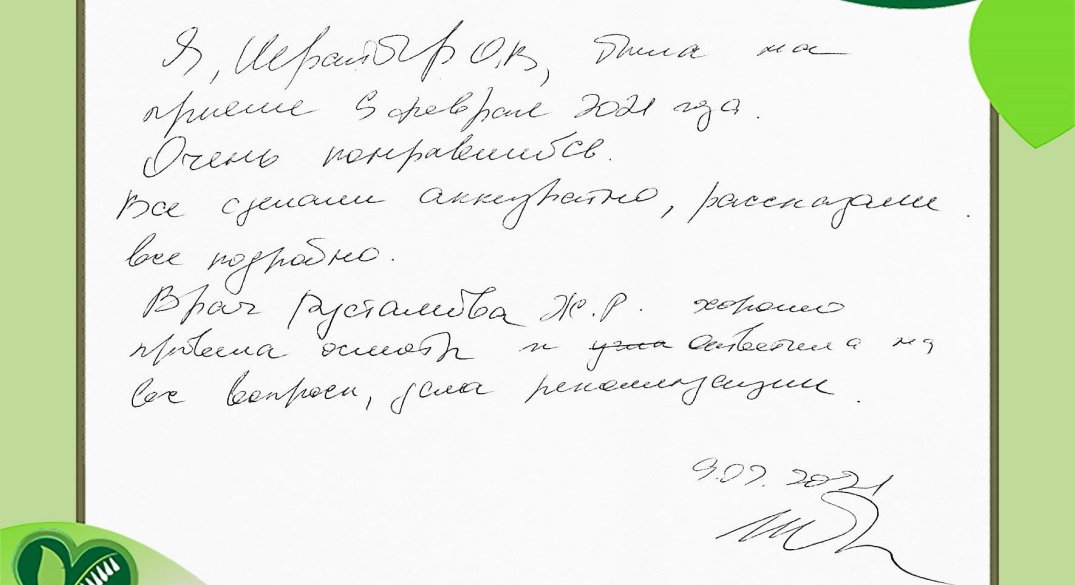 Я, О.В, была на
приеме 9 февраля 2021 года.
Очень понравилось.
Все сделали аккуратно, рассказали
все подробно.
Врач Рустамова Ж.Р. хорошо
провела осмотр и ответила на
все вопросы, дала рекомендации.
9.02.2021